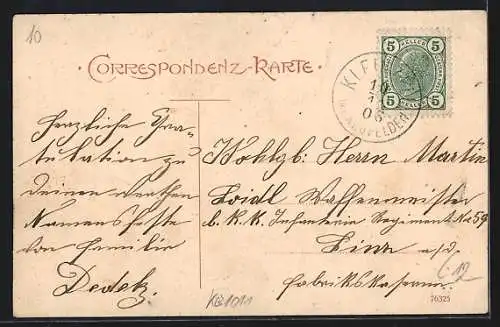 10
CORRESPONDENZ-KARTE.
5 HELLER 5
5 5
10
06
Herzliche Gra-
tulation zu
Deinem werthen
Namensfeste
von Familie
Dedek.
Wohlgb: Herrn Martin
Loidl Waffenmeister
b. K.K. Infanterie Regiment No 59
Linz a/d.
Fabrikskaserne.
70325